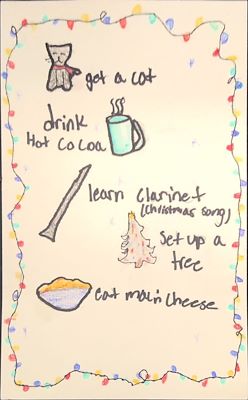 get a cat
drink
Hot Cocoa
learn clarinet
(Christmas song)
Set up a
tree
eat mac n cheese